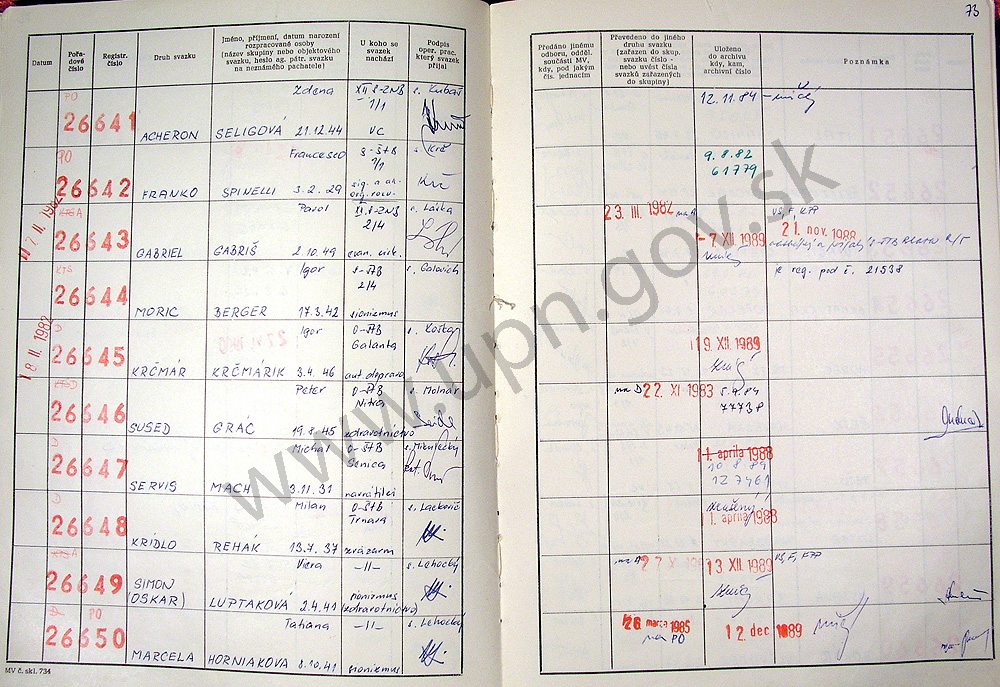 73
Datum
Pořa-
dové
číslo
Registr.
číslo
Druh svazku
Jméno, příjmení, datum narození
rozpracované osoby
(název skupiny nebo objektového
svazku, heslo ag. pátr. svazku
na neznámého pachatele)
U koho se
svazek
nachází
Podpis
oper. prac.
který svazek
přijal
Předáno jinému
odboru, odděl.
součásti MV,
kdy, pod jakým
čís. jednacím
Převedeno do jiného
druhu svazku
(zařazen do skup.
svazku číslo -
nebo uvést čísla
svazků zařazených
do skupiny)
Uloženo
do archivu
kdy, kam,
archivní číslo
Poznámka
PO
Zdena
XII S-ZNB
1/1
s. Kubaš
12.11.84
26641
ACHERON
SELIGOVÁ 21.12.44
VC
PO
Francesco
S-ŠtB
1/1
9.8.82
61779
26642
FRANKO
SPINELLI 3.2.29
17 II. 1982
Pavol
XII.S-ZNB
2/4
s. Láska
23 III. 1982
-7 XII 1989
21. nov. 1988
26643
GABRIEL
GABRIŠ 2.10.49
KTS
Igor
S-ŠtB
2/4
s. Galovich
k reg. pod č. 21538
26644
MORIC
BERGER 17.3.42
sionizmus
18 II. 1982
D
Igor
O-ŠtB
Galanta
s. Koška
19. XII. 1989
26645
KRČMÁR
KRČMÁRIK 3.4.46
aut.doprava
Peter
O-ŠtB
Nitra
s. Molnár
na D 22 XI 1983
5.9.84
77738
26646
SUSED
GRÁČ 19.8.45
zdravotníctvo
D
Michal
O-ŠtB
Senica
s. Mikulecký
-1. apríla 1988
10.8.89
127461
26647
SERVIS
MACH 3.11.31
navrátilci
D
Milan
O-ŠtB
Trnava
s. Lackovič
1 apríla 1988
26648
KRÍDLO
REHÁK 13.7.37
zväzarm
Viera
-11-
s. Lehocký
27 X
13 XII. 1989
26649
SIMON
(OSKAR)
LUPTAKOVÁ 2.4.41
sionizmus
(zdravotníctvo)
PO
Tatiana
-11-
s. Lehocký
26 marca 1985
na PO
12 dec 1989
26650
MARCELA
HORNIAKOVA 8.10.41
sionizmus
MV č. skl. 734
www.upn.gov.sk